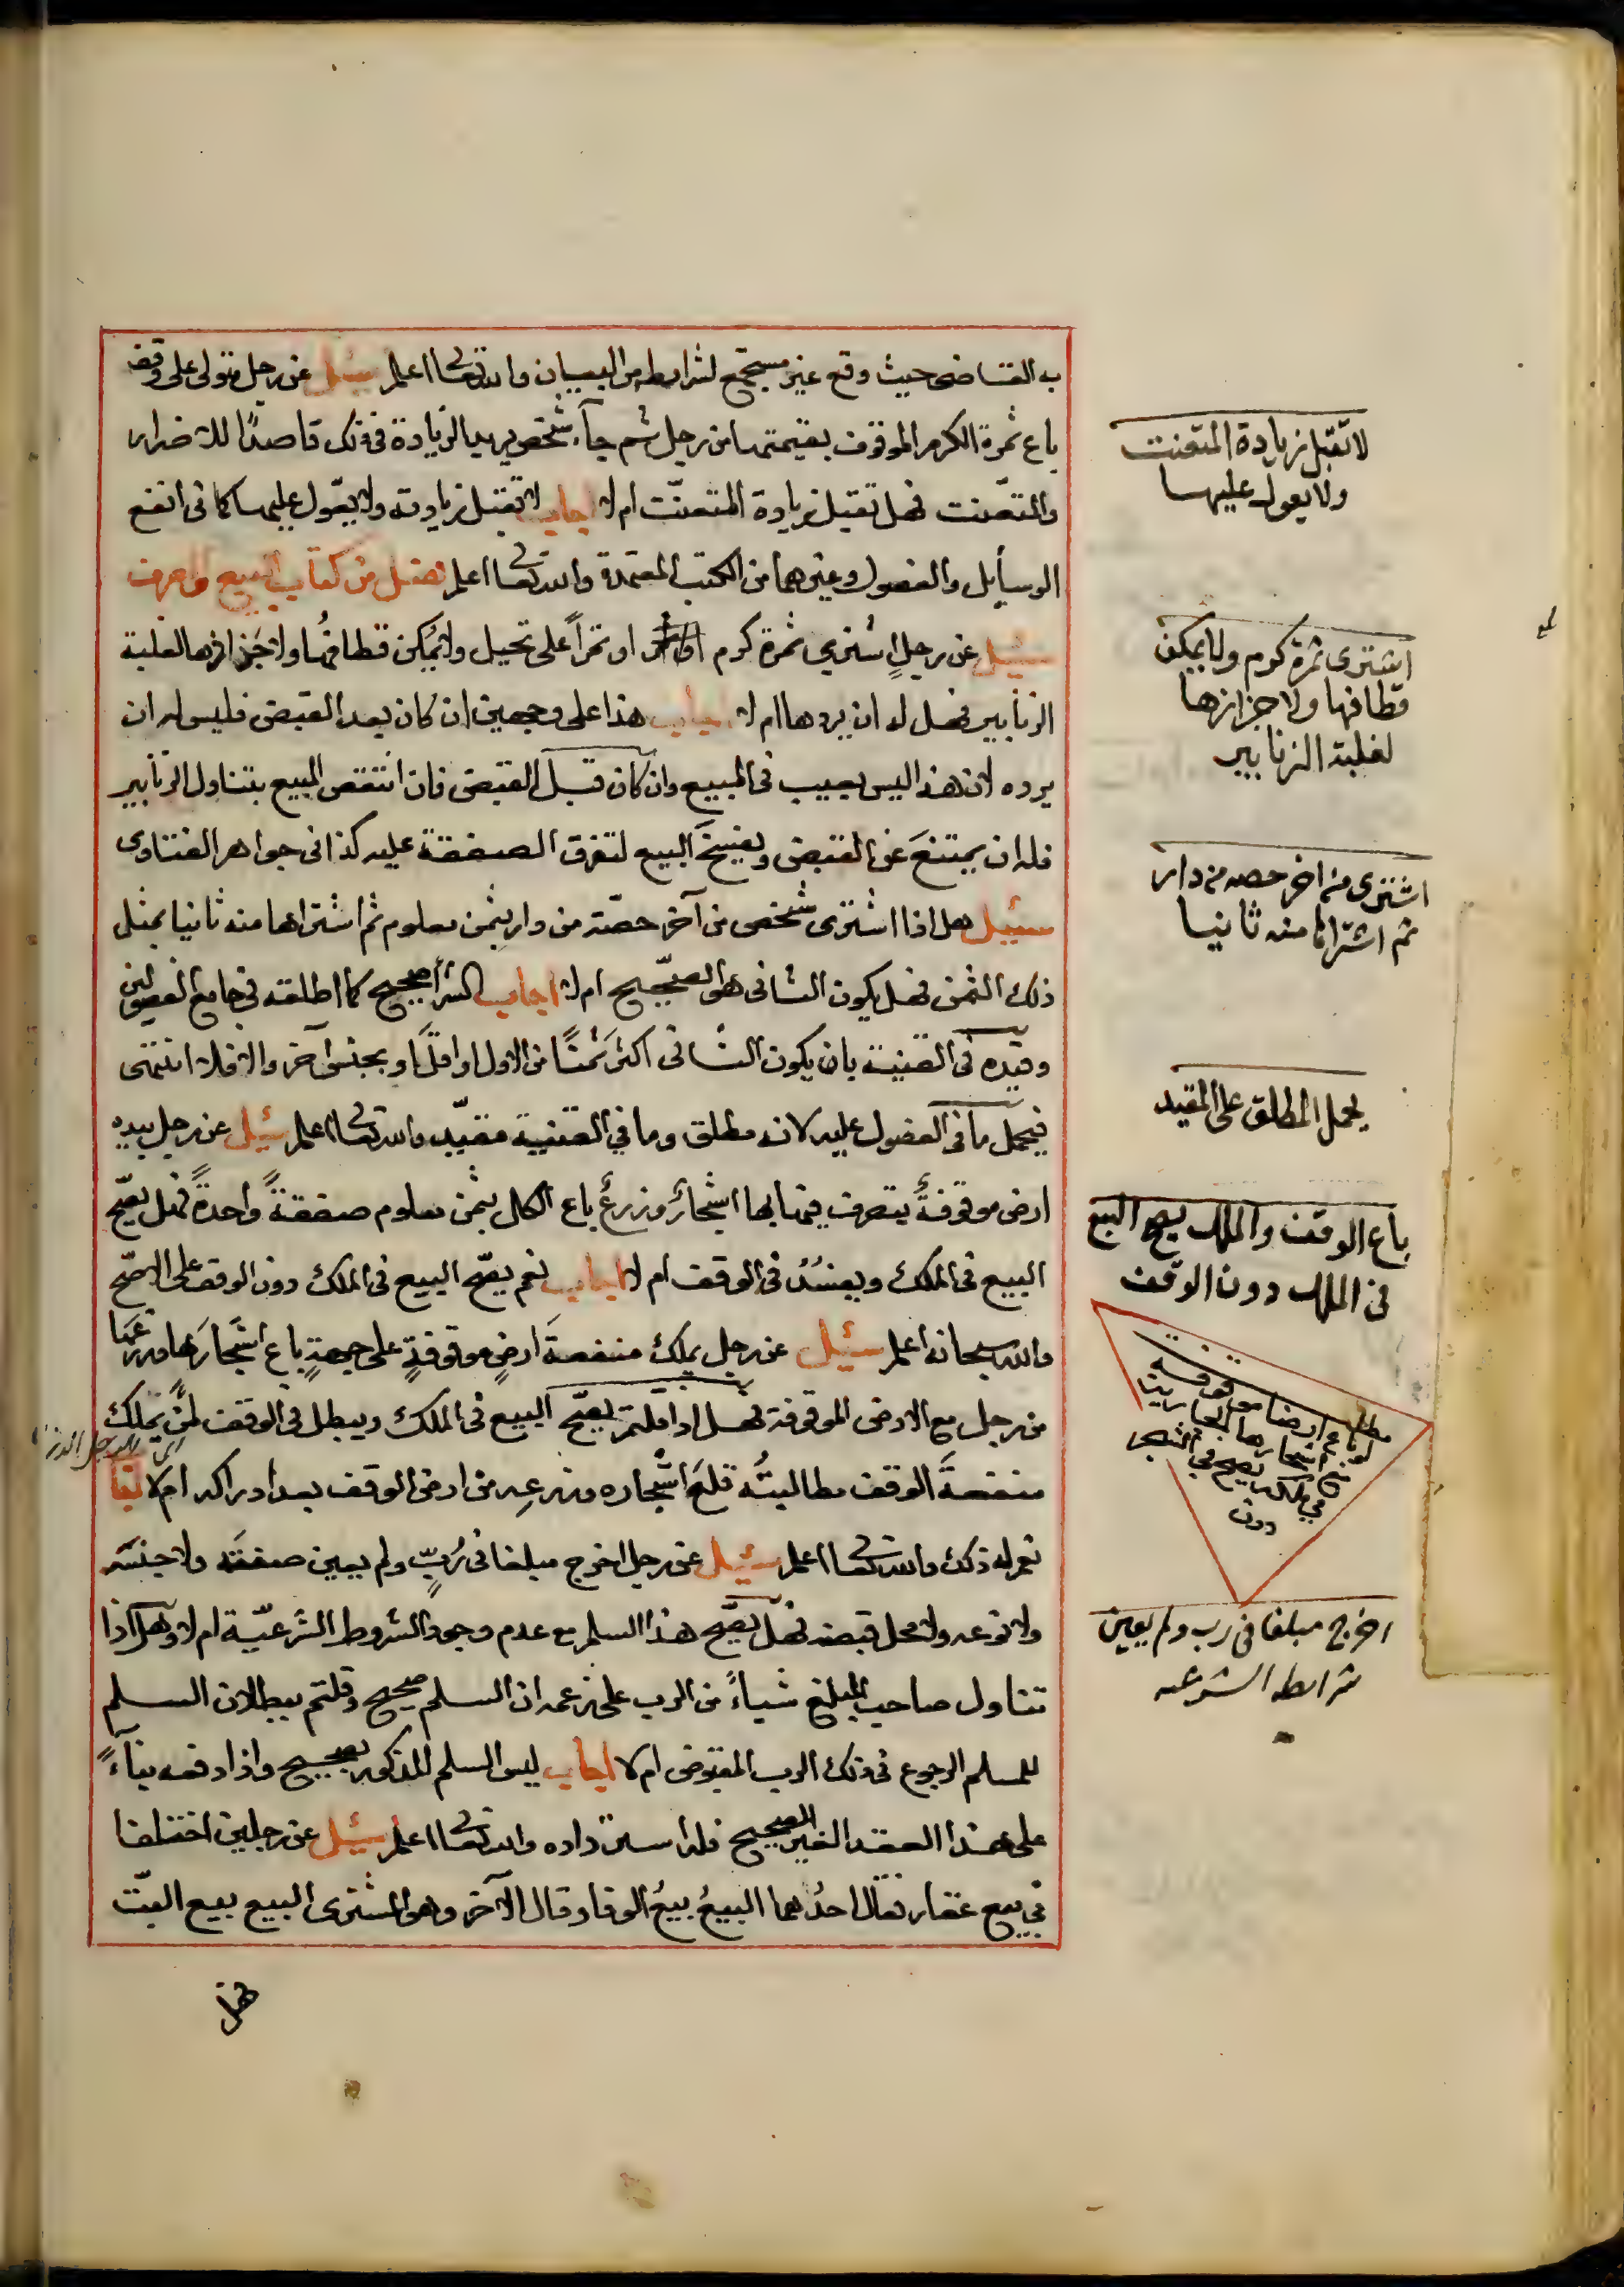 ب القاضى حيث وقع غير مستجمع لشرايط من البيان والله تعالى اعلم سئيل عن رجل متولى على وقف
باع ثمرة الكرم الموقوف بقيمتها من رجل ثم جآء شخص يريد الزيادة فى ذلك قاصدًا للاضرار
والتعنت فهل تقبل زيادة المتعنّت ام لا اجاب لا تقبل زيادته ولا يعوّل عليها كما فى انفع
الوسايل والفصول وغيرهما من الكتب المعتمدة والله تعالى اعلم فصل من كتاب البيع والصرف
سئيل عن رجلٍ اشترى ثمرة كرم او تمراً على نخيل ولا يمكن قطافها ولا جَزازها لغلبة
الزنابير فهل له ان يردها ام لا اجاب هذا على وجهين ان كان بعد القبض فليس له ان
يرده لان هذا ليس بعيب فى المبيع وان كان قبل القبض فان انتقص المبيع بتناول الزنابير
فله ان يمتنعَ عن القبض ويفسخَ البيع لتفرق الصفقة عليه كذا فى جواهر الفتاوى
سئيل هل اذا اشترى شخص من آخر حصّة من دار بثمن معلوم ثم اشتراها منه ثانيا بمثل
ذلك الثمن فهل يكون الثانى هو الصحيح ام لا اجاب الشرآ صحيح كما اطلقه فى جامع الفصولين
وقيّده فى القنية بان يكون الثانى اكثرَ ثمنًا من الاول او اقلَّ او بجنس آخر والا فلا انتهى
فيحمل ما فى الفصول عليه لانه مطلق وما في القنية مقيّد والله تعالى اعلم سئيل عن رجل بيده
ارض موقوفةٌ يتصرف فيها بها اشجارٌ وزرعٌ باع الكل بثمن معلوم صفقةً واحدةً فهل يصّح
البيع فى الملك ويفسُدُ فى الوقف ام لا اجاب نعم يصّح البيع فى الملك دون الوقف على الاصّح
والله سبحانه اعلم سئيل عن رجل يملك منفعةَ ارضٍ موقوفةٍ على جهةٍ باع اشجارَها وزرعَها
من رجل مع الارض الموقوفة فهل اذا قلتم يصّح البيع فى الملك ويبطل فى الوقف لمن يملك
منفعةَ الوقف مطالبتُه قلعَ اشجاره وزرعِه من ارض الوقف بعد ادراكه ام لا
نعم له ذلك والله تعالى اعلم سئيل عن رجل اخرج مبلغا فى رُبٍّ ولم يعين صفتَه ولا جنسَه
ولا نوعه ولا محل قبضه فهل يصّح هذا السلم مع عدم وجود الشروط الشرعيّة ام لا وهل اذا
تناول صاحب المبلغ شياءً من الرب على زعمه ان السلم صحيح وقلتم ببطلان السلم
للمسلم الرجوع فى ذلك الرب المقبوض ام لا اجاب ليس السلم المذكور بصحيح واذا دفعه بناءً
على هذا العقد الغير الصحيح فله استرداده والله تعالى اعلم سئيل عن رجلين اختلفا
في بيع عقار فقال احدُهما البيعُ بيعُ الوفا وقال الآخر وهو المشترى البيع بيع البتّ
فهل
لا تقبل زيادة المتعنت
ولا يعول عليها
اشترى ثمرة كرم ولا يمكن
قطافها ولا جزازها
لغلبة الزنابير
اشترى من اخر حصه من دار
ثم اشتراها منه ثانيا
يحمل المطلق على المقيد
باع الوقف والملك يصح البيع
فى الملك دون الوقف
مطلب
لو باع ارضا موقوفة
مع اشجارها الجارية
في ملكه يصح في الشجر
دون
اخرج مبلغا فى رب ولم يعين
شرايط الشرعيه